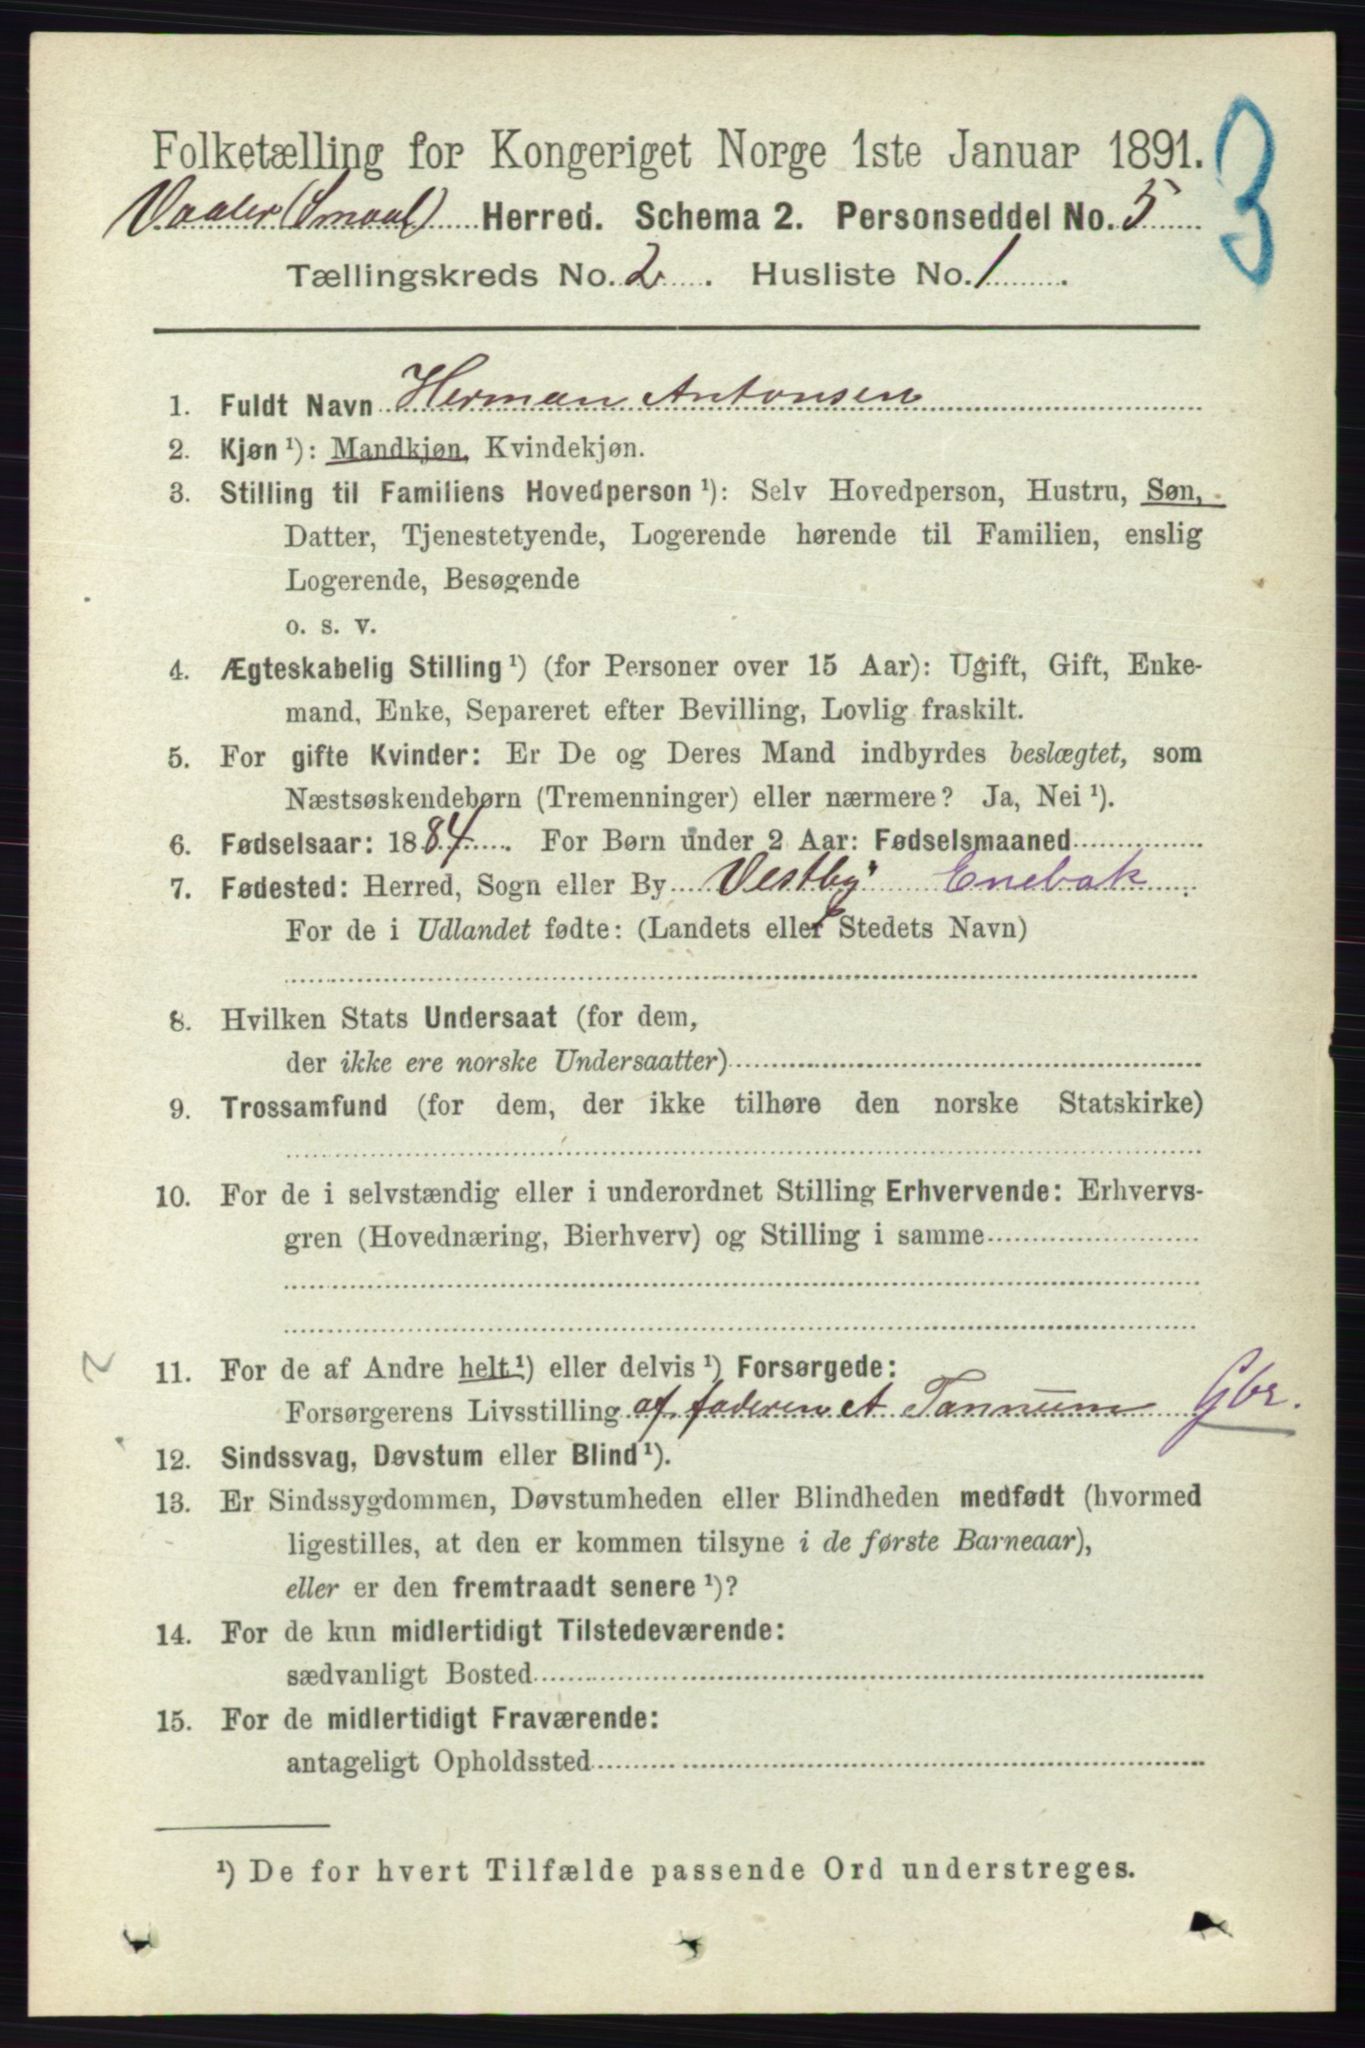 Folketælling for Kongeriget Norge 1ste Januar 1891.
3
Vaaler (Smaal) Herred. Schema 2. Personseddel No. 5
Tællingskreds No. 2. Husliste No. 1.
1. Fuldt Navn Herman Antonsen
2. Kjøn ¹): Mandkjøn, Kvindekjøn.
3. Stilling til Familiens Hovedperson ¹): Selv Hovedperson, Hustru, Søn,
Datter, Tjenestetyende, Logerende hørende til Familien, enslig
Logerende, Besøgende
o. s. v.
4. Ægteskabelig Stilling ¹) (for Personer over 15 Aar): Ugift, Gift, Enke-
mand, Enke, Separeret efter Bevilling, Lovlig fraskilt.
5. For gifte Kvinder: Er De og Deres Mand indbyrdes beslægtet, som
Næstsøskendebørn (Tremenninger) eller nærmere? Ja, Nei ¹).
6. Fødselsaar: 1884. For Børn under 2 Aar: Fødselsmaaned
7. Fødested: Herred, Sogn eller By Vestby Enebak.
For de i Udlandet fødte: (Landets eller Stedets Navn)
8. Hvilken Stats Undersaat (for dem,
der ikke ere norske Undersaatter)
9. Trossamfund (for dem, der ikke tilhøre den norske Statskirke)
10. For de i selvstændig eller i underordnet Stilling Erhvervende: Erhvervs-
gren (Hovednæring, Bierhverv) og Stilling i samme
2
11. For de af Andre helt ¹) eller delvis ¹) Forsørgede:
Forsørgerens Livsstilling af faderen A Tannum Gbr.
12. Sindssvag, Døvstum eller Blind ¹).
13. Er Sindssygdommen, Døvstumheden eller Blindheden medfødt (hvormed
ligestilles, at den er kommen tilsyne i de første Barneaar),
eller er den fremtraadt senere ¹)?
14. For de kun midlertidigt Tilstedeværende:
sædvanligt Bosted
15. For de midlertidigt Fraværende:
antageligt Opholdssted
¹) De for hvert Tilfælde passende Ord understreges.